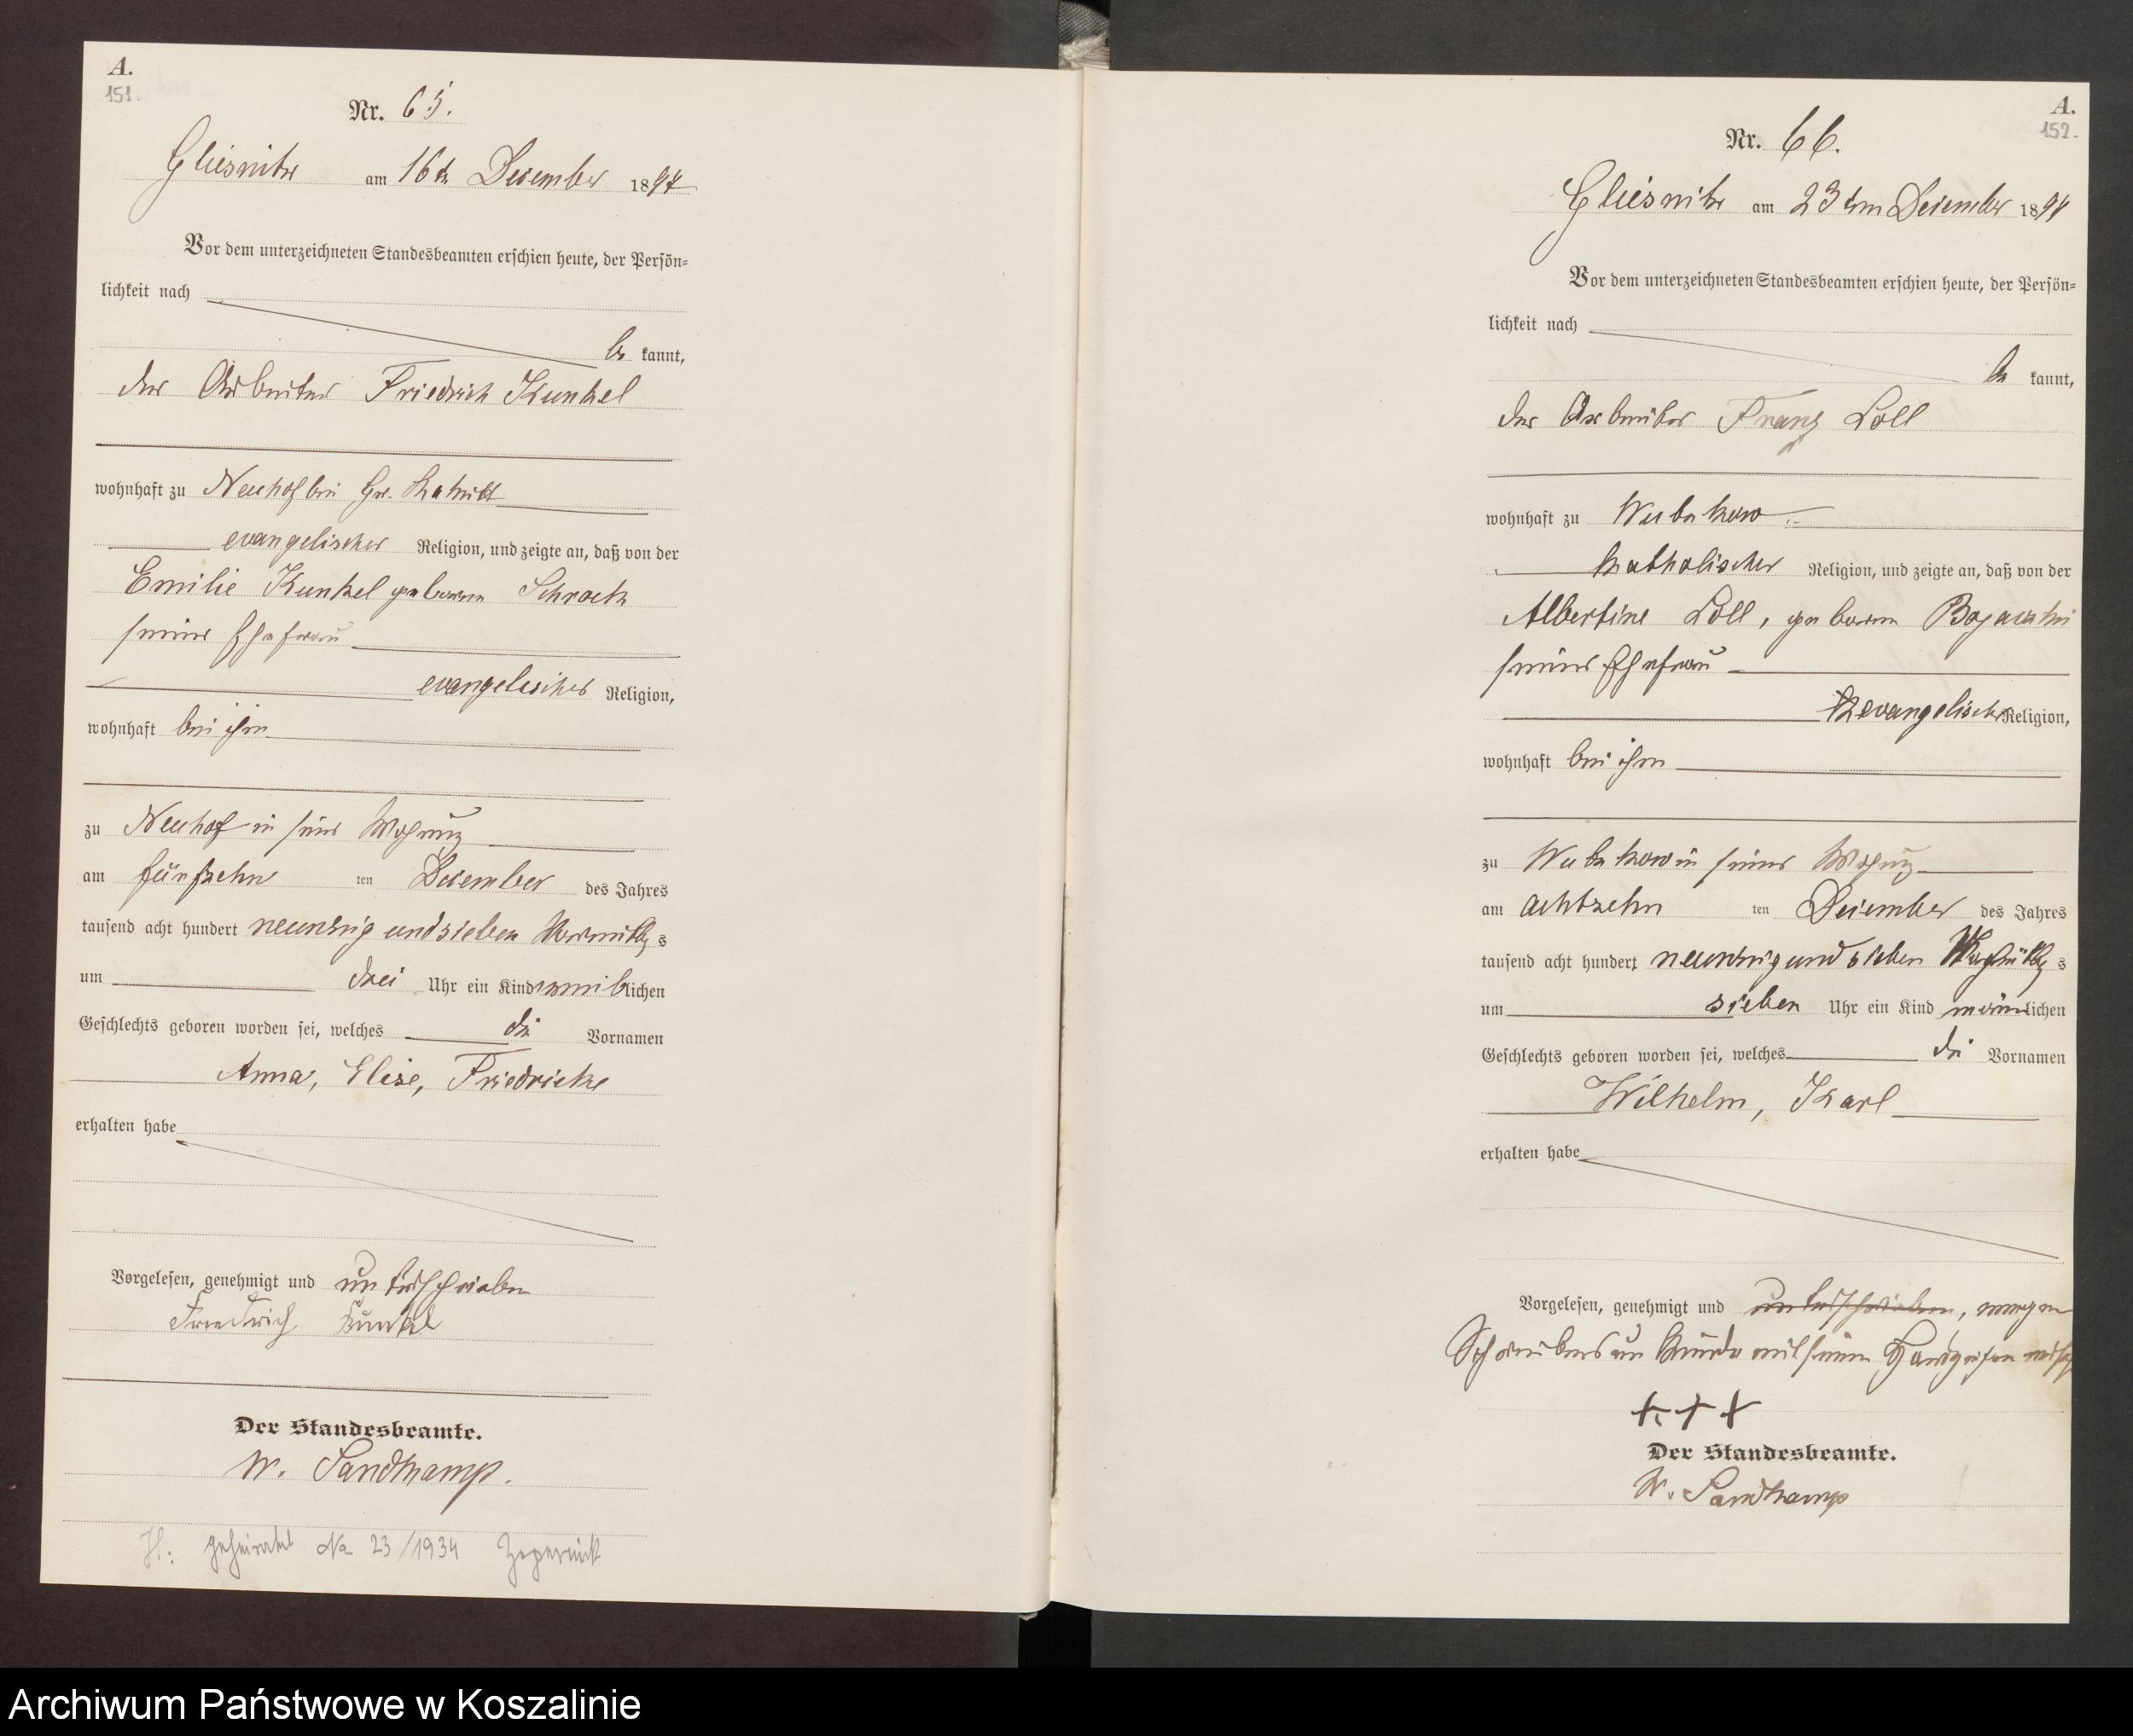 A.
151.
Nr. 65.
Gliesnitz am 16ten Dezember 1897
Vor dem unterzeichneten Standesbeamten erschien heute, der Persön=
lichkeit nach
be kannt,
der Arbeiter Friedrich Kunkel
wohnhaft zu Neuhof bei Gr.
evangelischer Religion, und zeigte an, daß von der
Emilie Kunkel geborene Schrock
seiner Ehefrau
evangelischer Religion,
wohnhaft bei ihm
zu Neuhof in seiner Wohnung
am fünfzehn ten Dezember des Jahres
tausend acht hundert neunzig und sieben Vormittag s
um drei Uhr ein Kind weiblichen
Geschlechts geboren worden sei, welches die Vornamen
Anna, Elise, Friedricke
erhalten habe
Vorgelesen, genehmigt und unterschrieben
Friedrich Kunkel
Der Standesbeamte.
W. Sandkamp.
H: geheiratet No 23/1934 Zepernick
A.
152.
Nr. 66.
Gliesnitz am 23ten Dezember 1897
Vor dem unterzeichneten Standesbeamten erschien heute, der Persön=
lichkeit nach
be kannt,
der Arbeiter Franz Loll
wohnhaft zu
katholischer Religion, und zeigte an, daß von der
Albertine Loll, geborene
seiner Ehefrau
evangelischer Religion,
wohnhaft bei ihm
zu in seiner Wohnung
am achtzehn ten Dezember des Jahres
tausend acht hundert neunzig und sieben Nachmittag s
um sieben Uhr ein Kind männlichen
Geschlechts geboren worden sei, welches die Vornamen
Wilhelm, Karl
erhalten habe
Vorgelesen, genehmigt und unterschrieben, wegen
Schreibensunkunde mit seinem Handzeichen
+++
Der Standesbeamte.
W. Sandkamp
Archiwum Państwowe w Koszalinie